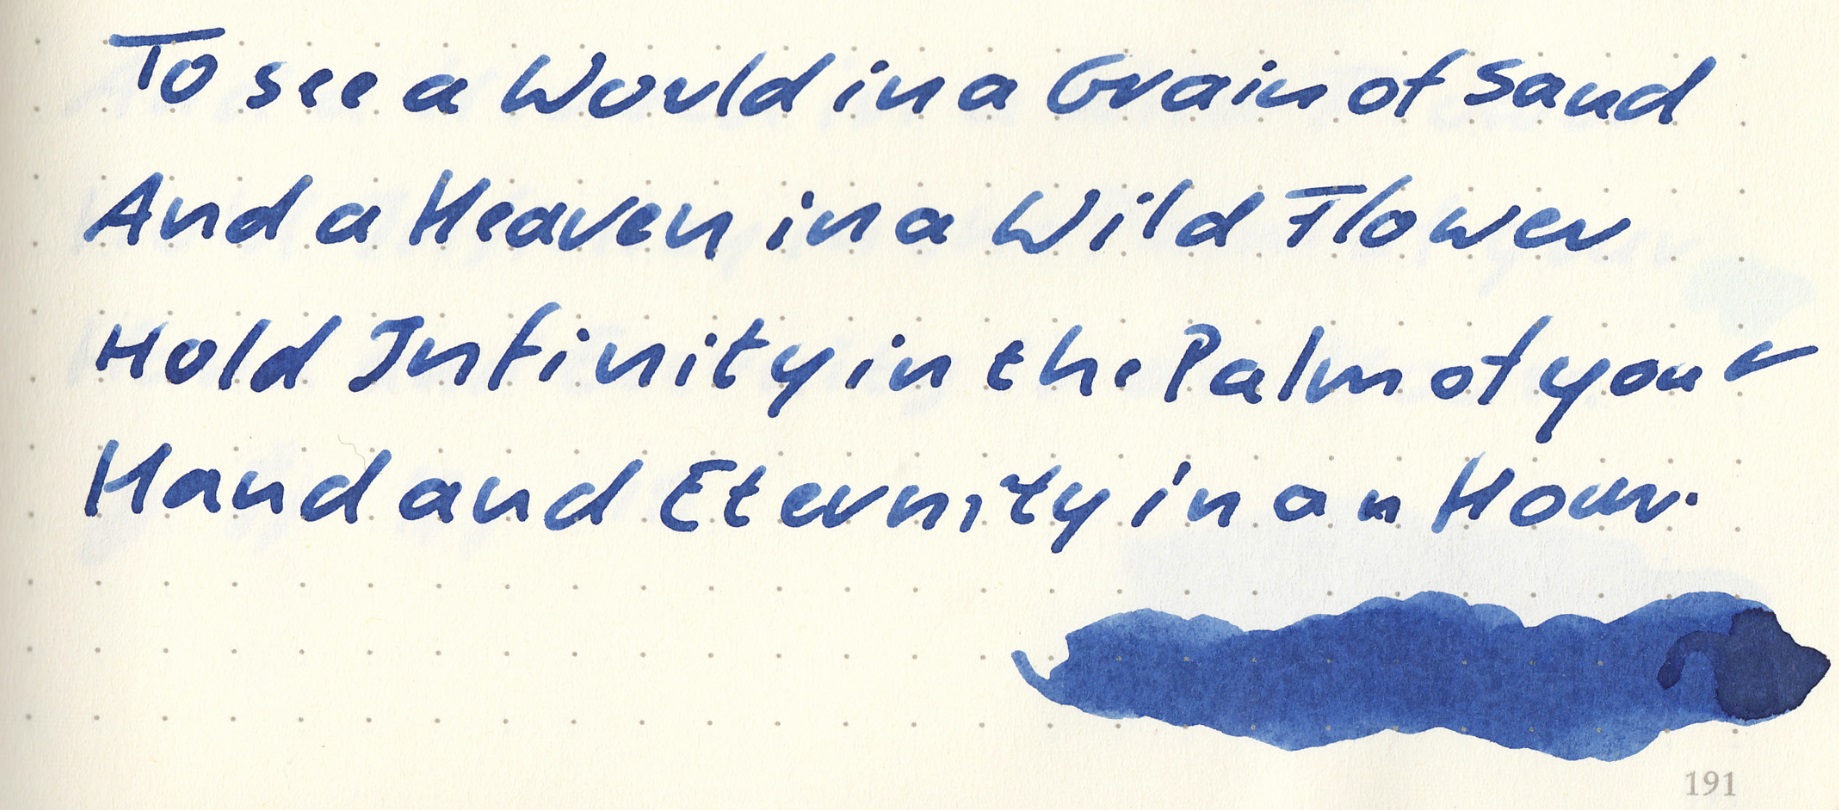 To see a World in a Grain of Sand
And a Heaven in a Wild Flower
Hold Infinity in the Palm of your
Hand and Eternity in an Hour.
191